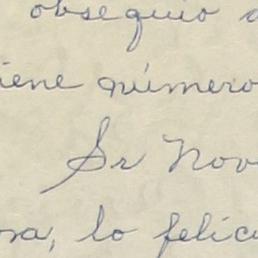 obsequio
iene número
Sr Nov
sa, lo felic